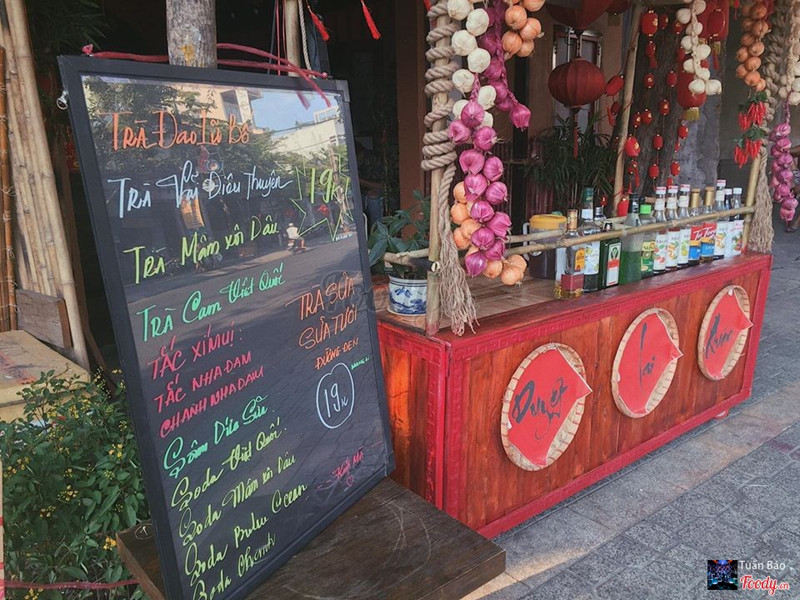 TRÀ ĐÀO LÚ BÚ
TRÀ VẢI DIÊU THUYỀN
19K
TRÀ MÂM XÔI DÂU
TRÀ CAM VIỆT QUẤT
TẮC XÍ MUỘI
TẮC NHA ĐAM
CHANH NHA ĐAM
TRÀ SỮA
SỮA TƯƠI
ĐƯỜNG ĐEN
19K
Soda Việt Quất
Soda Mâm Xôi Dâu
Soda Blue Ocean
Soda Chanh
Duyệt
Lai
Quán
Tuấn Bảo
Foody.vn